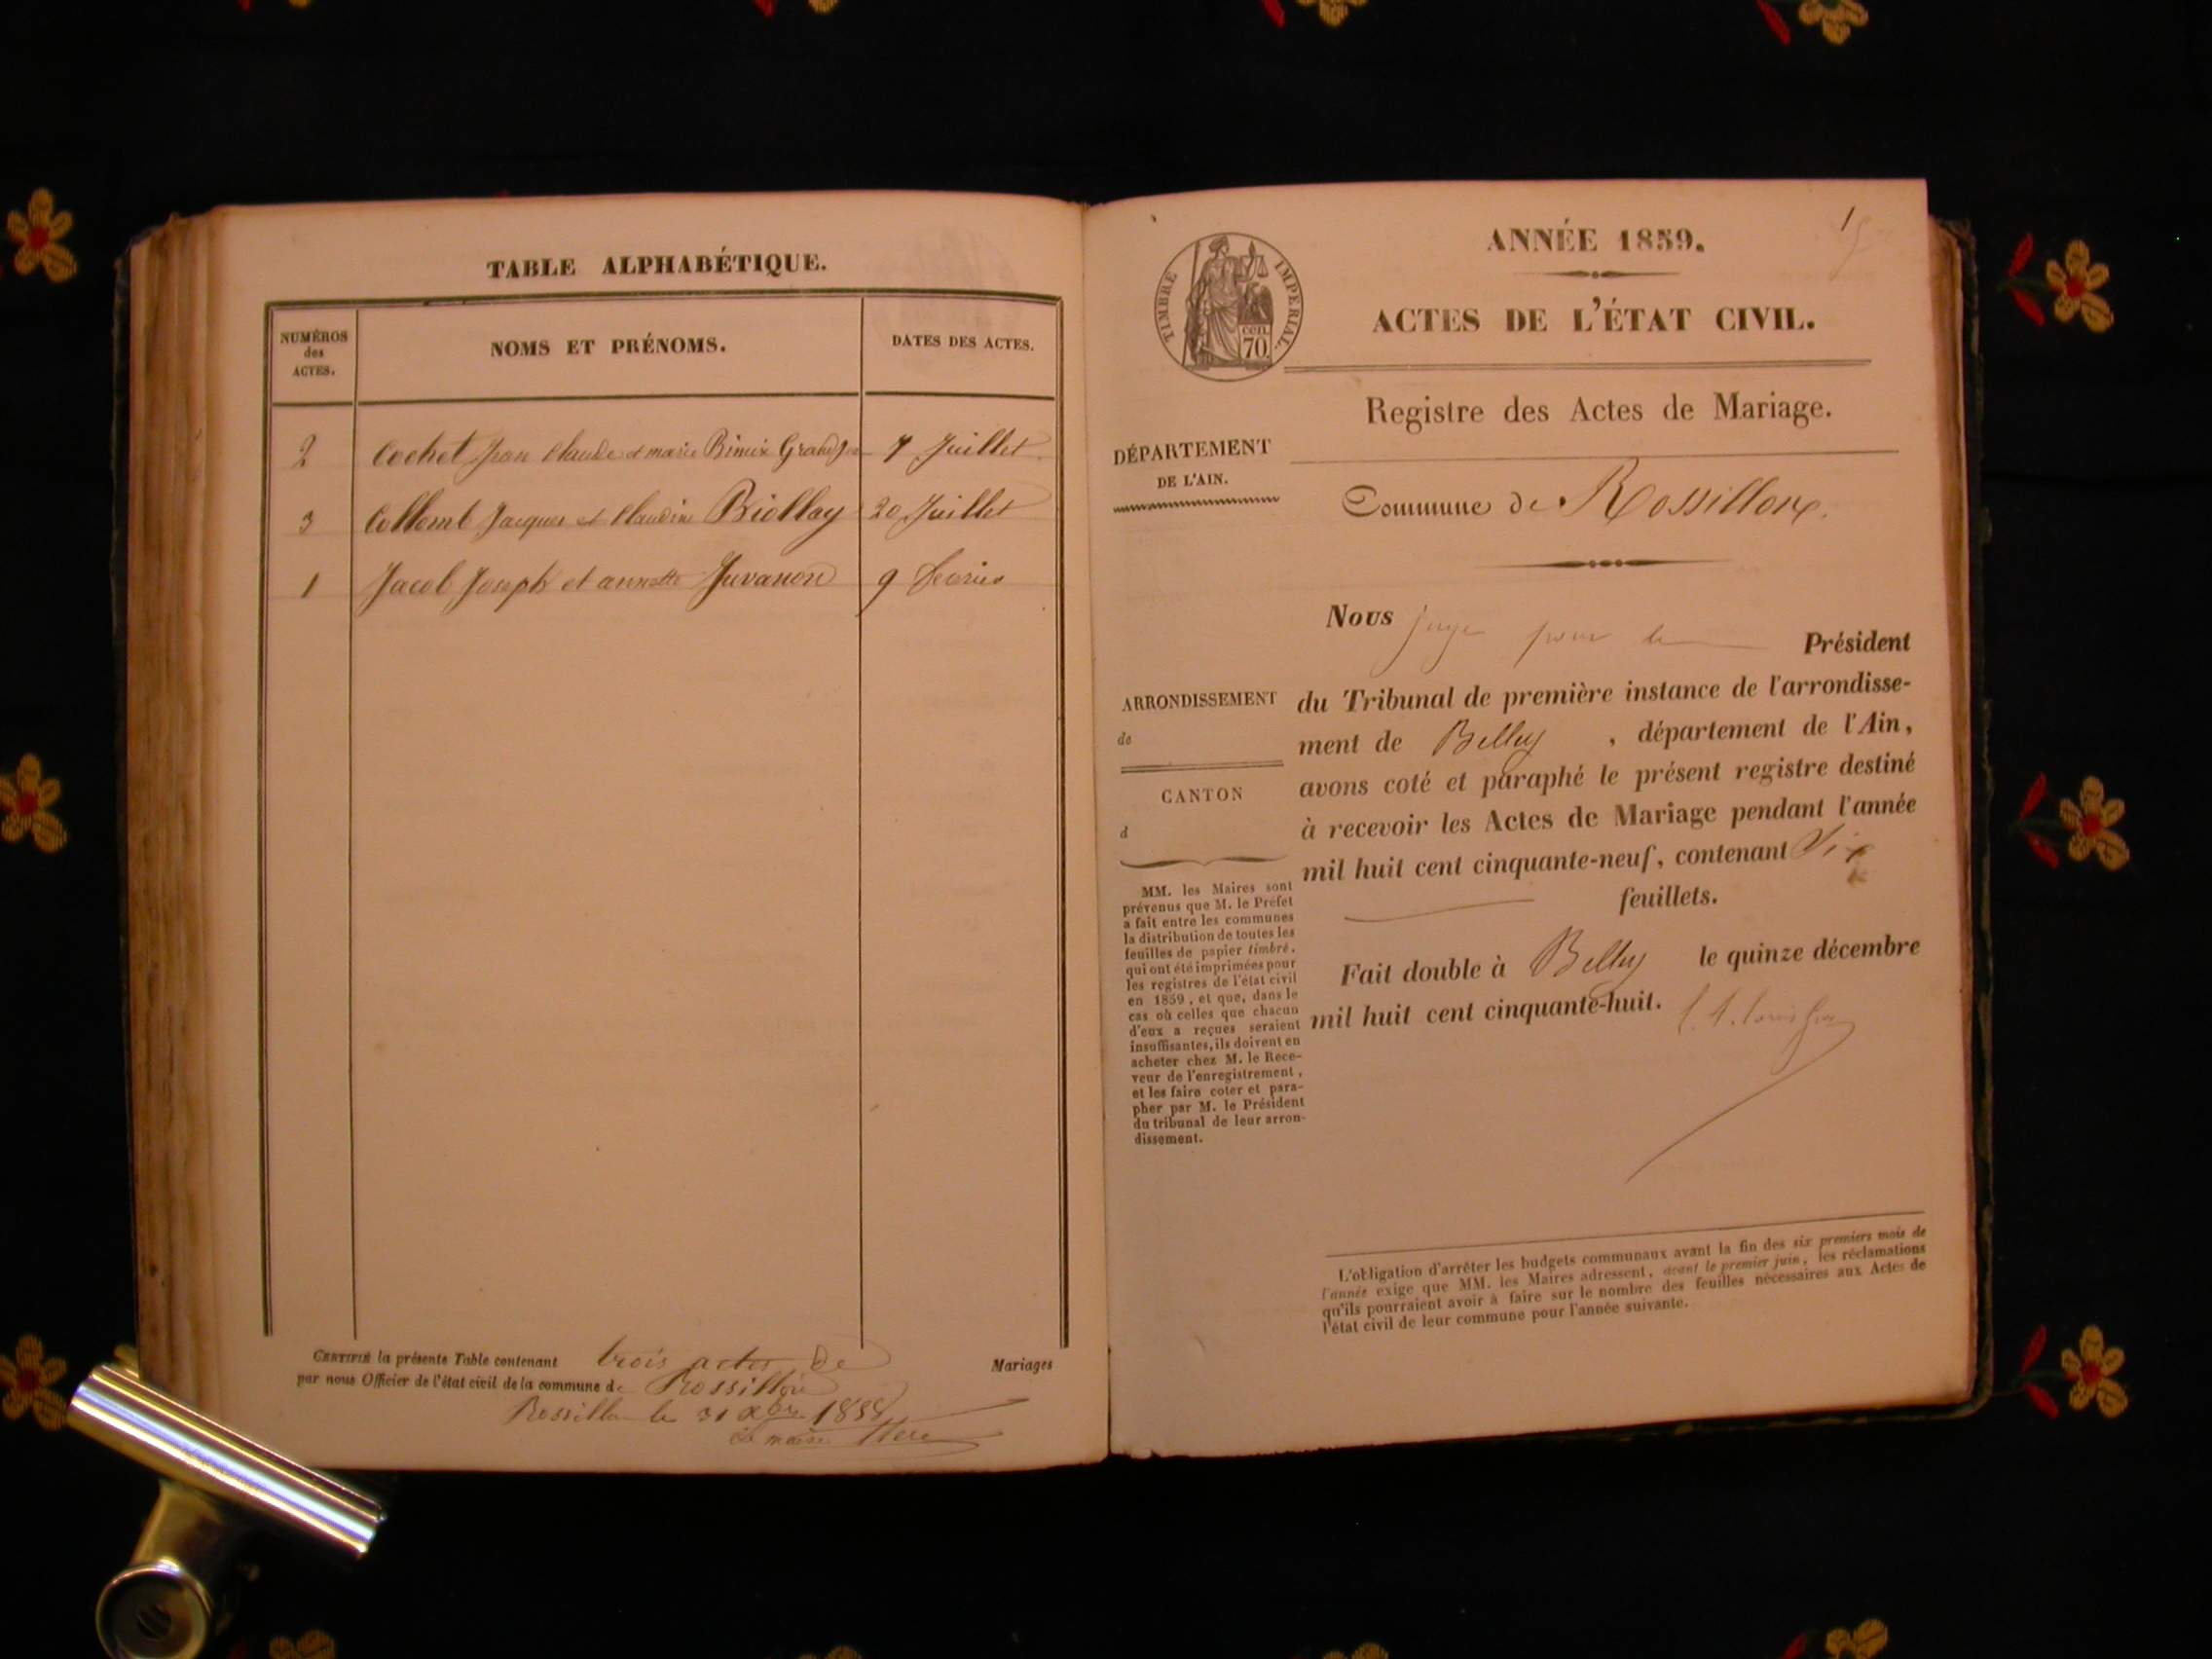 TABLE ALPHABÉTIQUE.
NUMÉROS
des
ACTES.
NOMS ET PRÉNOMS.
DATES DES ACTES.
2 Cochet Jean Claude et marie 7 Juillet
3 Collomb Jacques et Claudine Biollay 20 Juillet
1 Jacob Joseph et annette Juvanon 9 fevrier
CERTIFIÉ la présente Table contenant trois actes de Mariages
par nous Officier de l'état civil de la commune de Rossillon
Rossillon le 31 Xbre 1858
Le maire
1
ANNÉE 1859.
ACTES DE L'ÉTAT CIVIL.
TIMBRE IMPERIAL.
cen.
70.
Registre des Actes de Mariage.
DÉPARTEMENT
DE L'AIN.
Commune de Rossillon.
Nous juge pour le Président
du Tribunal de première instance de l'arrondisse-
ment de Belley, département de l'Ain,
avons coté et paraphé le présent registre destiné
à recevoir les Actes de Mariage pendant l'année
mil huit cent cinquante-neuf, contenant Six
feuillets.
Fait double à Belley le quinze décembre
mil huit cent cinquante-huit.
ARRONDISSEMENT
de
CANTON
d
MM. les Maires sont
prévenus que M. le Préfet
a fait entre les communes
la distribution de toutes les
feuilles de papier timbré,
qui ont été imprimées pour
les registres de l'état civil
en 1859, et que, dans le
cas où celles que chacun
d'eux a reçues seraient
insuffisantes, ils doivent en
acheter chez M. le Rece-
veur de l'enregistrement,
et les faire coter et para-
pher par M. le Président
du tribunal de leur arron-
dissement.
L'obligation d'arrêter les budgets communaux avant la fin des six premiers mois de
l'année exige que MM. les Maires adressent, avant le premier juin, les réclamations
qu'ils pourraient avoir à faire sur le nombre des feuilles nécessaires aux Actes de
l'état civil de leur commune pour l'année suivante.